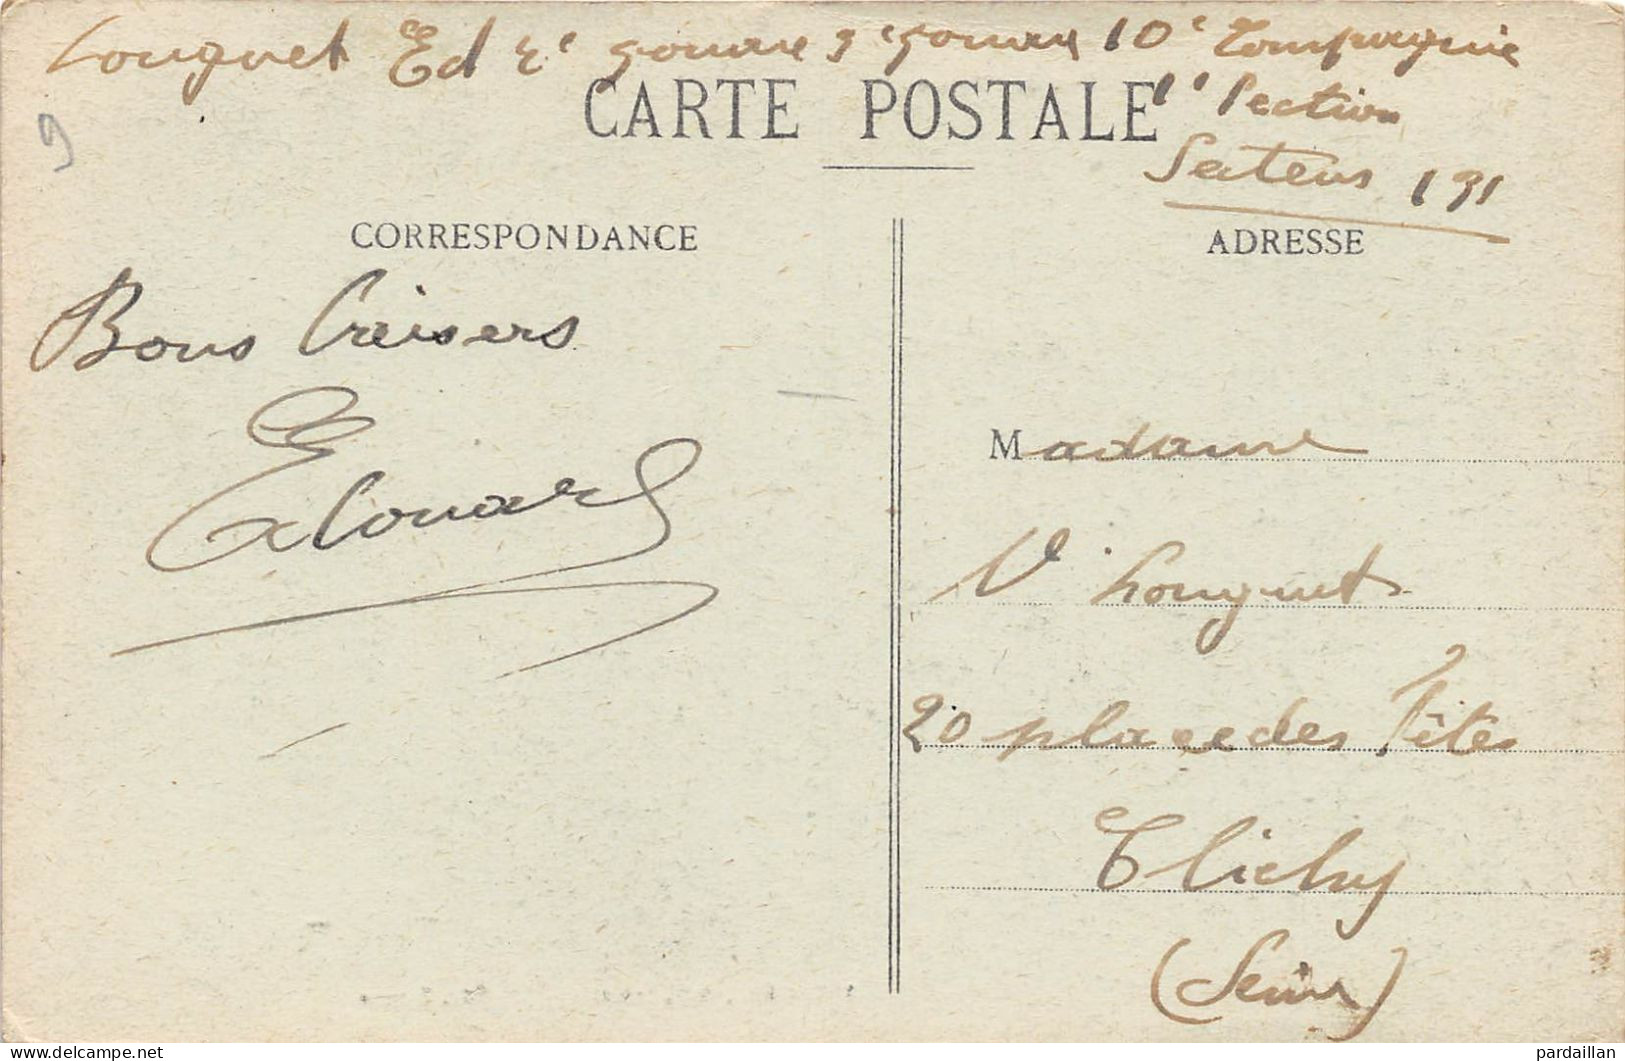 Longuet Ed 2e zouave 3e zouave 10e Compagnie
CARTE POSTALE
1e Section
Secteur 191
9
CORRESPONDANCE
ADRESSE
Bons Baisers
Edouard
Madame
Ve Longuet
20 place des Fêtes
Clichy
(Seine)
delcampe.net
pardaillan